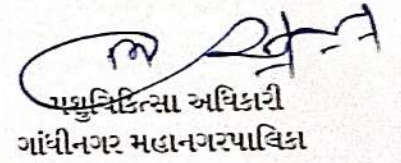 પશુચિકિત્સા અધિકારી
ગાંધીનગર મહાનગરપાલિકા